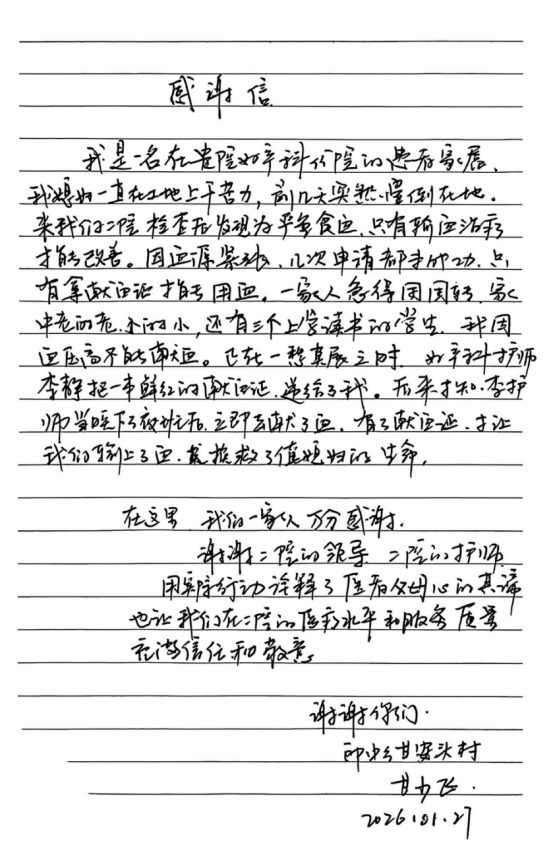 感谢信
我是一名在贵院妇产科住院的患者家属,
我媳妇一直在工地上干苦力,前几天突然晕倒在地.
来我们二院检查后发现为严重贫血,只有输血治疗
才能改善。因血源紧张,几次申请都未成功,只
有拿献血证才能用血。一家人急得团团转,家
中老的老,小的小,还有三个上学读书的学生,我因
血压高不能献血。正在一愁莫展之时,妇产科护师
李静把一本鲜红的献血证,递给了我。后来才知,李护
师当晚下了夜班后,立即去献了血,有了献血证,才让
我们输上了血,就挽救了媳妇的生命,
在这里 我们一家人万分感谢,
谢谢二院的领导 二院的护师
用实际行动诠释了医者父母心的真谛
也让我们在二院的医疗水平和服务质量
充满信任和敬意
谢谢你们.
甘家头村
甘少飞.
2026.01.27